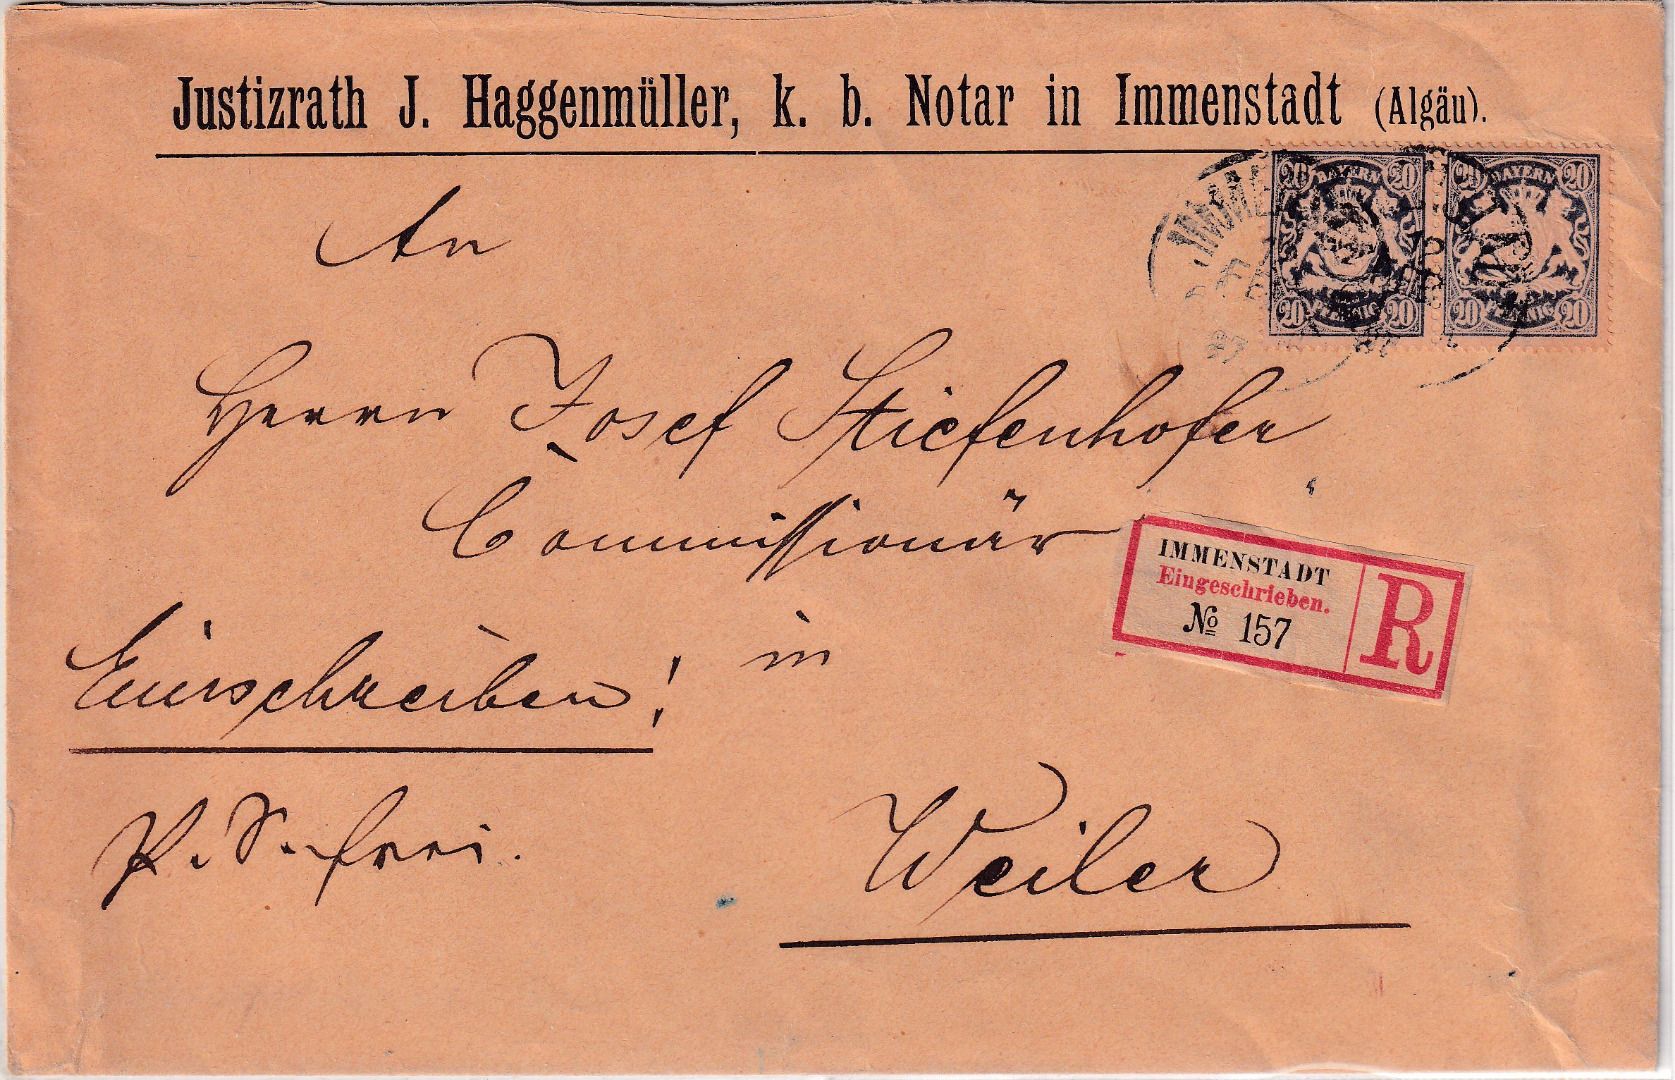 Justizrath J. Haggenmüller, k. b. Notar in Immenstadt (Algäu).
20 BAYERN 20
20 PFENNIG 20
20 BAYERN 20
20 PFENNIG 20
An
Herrn Josef Stiefenhofer
Commissionär
IMMENSTADT
Eingeschrieben.
№ 157
R
Einschreiben!
in
P. S. frei.
Weiler